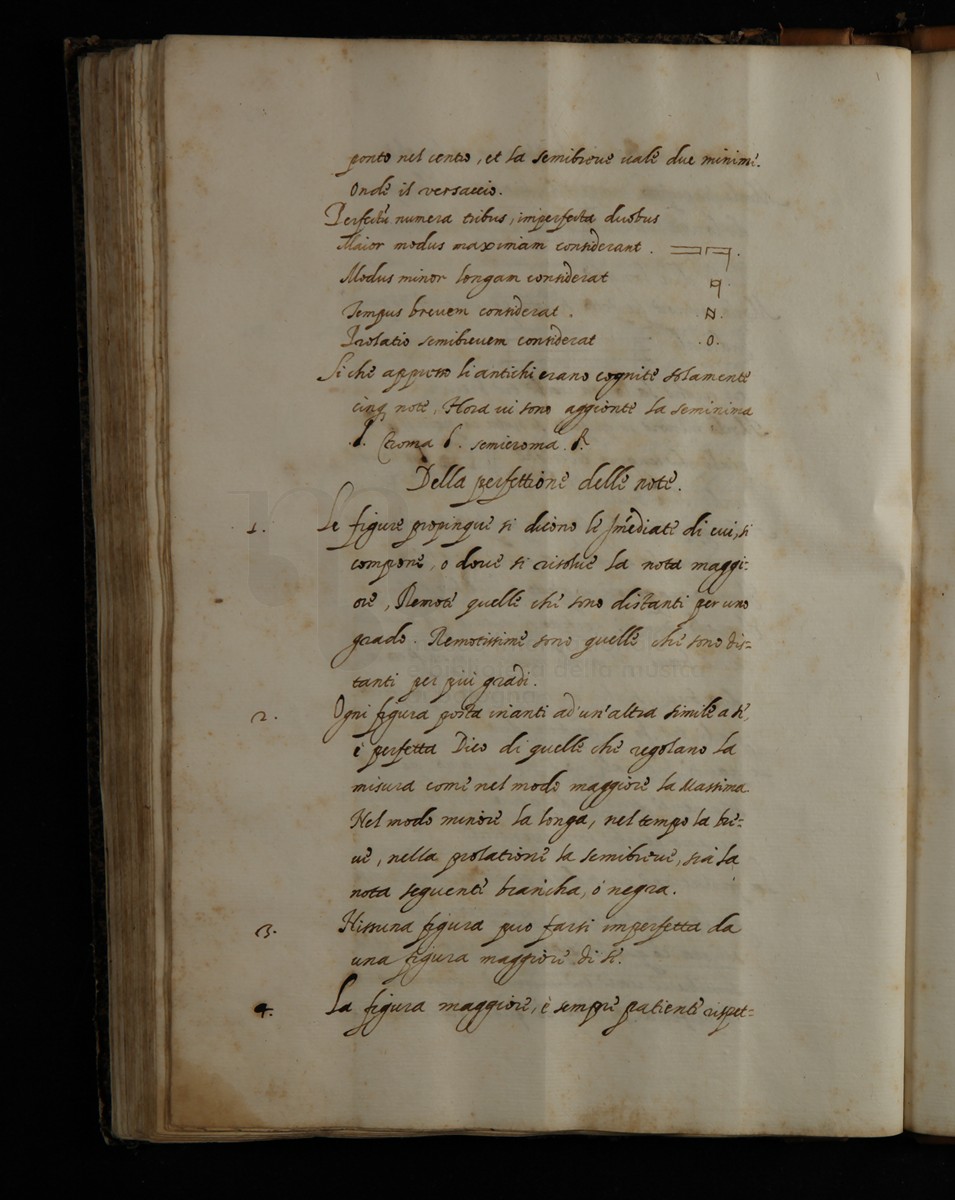 ponto nel centro, et la semibreue uale due minime.
Onde il versaccio.
Perfectū numera tribus, imperfecta duobus
Maior modus maximam considerant.
Modus minor longam considerat
Tempus breuem considerat.
Prolatio semibreuem considerat
Si che appresso li antichi erano cognite solamente
cinq note, Hora ui sono aggionte la seminima
Croma semicroma
Della perfettione delle note.
1. Le figure propinque si dicono le Imediate di cui, si
compone, o doue si risolue la nota maggi=
ore, Remote quelle che sono distanti per uno
grado. Remotissime sono quelle che sono dis=
tanti per più gradi.
2. Ogni figura posta inanti ad un'altra simile a se,
è perfetta Dico di quelle che regolano la
misura come nel modo maggiore la Massima
Nel modo minore la longa, nel tempo la bre=
ue, nella prolatione la semibreue, sia la
nota seguente biancha, ò negra.
3. Nissuna figura puo farsi imperfetta da
una figura maggiore di se.
4. La figura maggiore, è sempre patiente rispet=
della musica